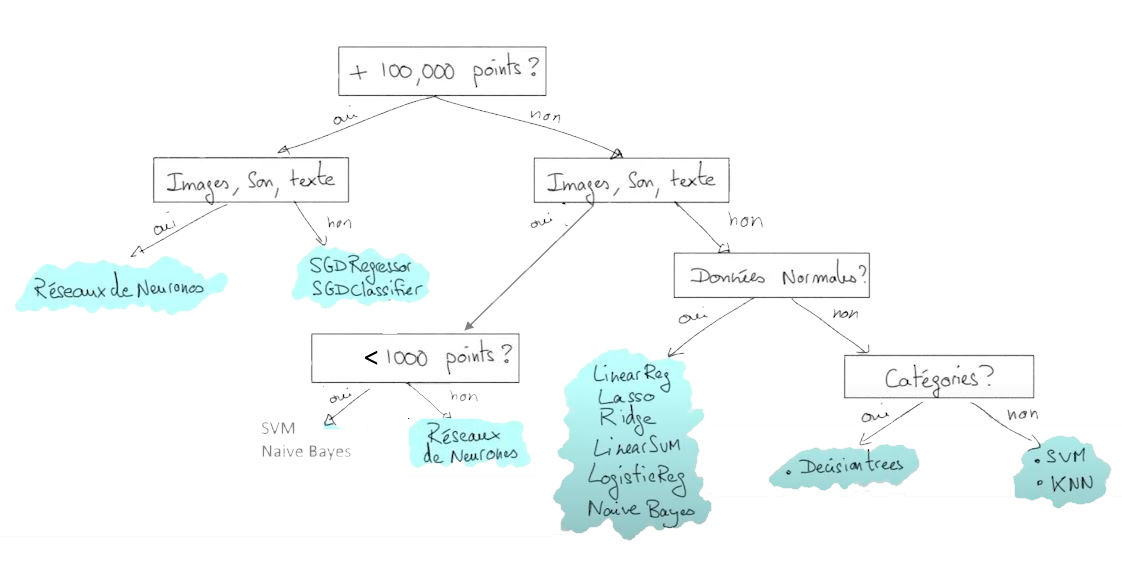 + 100,000 points?
oui
non
Images, Son, texte
Images, Son, texte
oui
non
oui
non
Réseaux de Neurones
SGDRegressor
SGDClassifier
Données Normales?
oui
non
< 1000 points?
oui
non
SVM
Naive Bayes
Réseaux
de Neurones
LinearReg
Lasso
Ridge
LinearSVM
LogisticReg
Naive Bayes
Catégories?
oui
non
• Decision trees
• SVM
• KNN